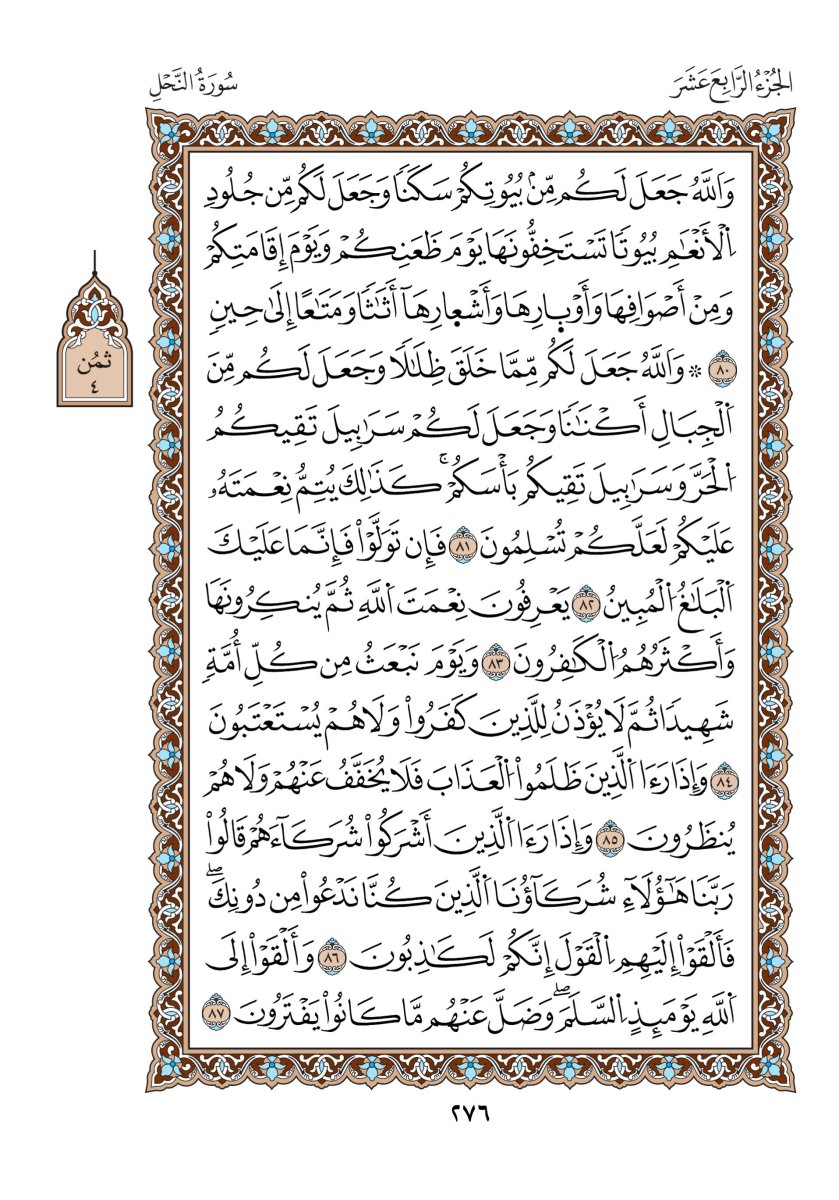 الجُزْءُ الرَّابِعَ عَشَرَ
سُورَةُ النَّحْلِ
وَاَللَّهُ جَعَلَ لَكُم مِّنۢ بُيُوتِكُمْ سَكَنٗا وَجَعَلَ لَكُم مِّن جُلُودِ
اِلْأَنْعَٰمِ بُيُوتٗا تَسْتَخِفُّونَهَا يَوْمَ ظَعَنِكُمْ وَيَوْمَ إِقَامَتِكُمْ
وَمِنْ أَصْوَافِهَا وَأَوْبارِهَا وَأَشْعارِهَآ أَثَٰثٗا وَمَتَٰعًا إِلَىٰ حِينٖ
٨٠ ۞ وَاَللَّهُ جَعَلَ لَكُم مِّمَّا خَلَقَ ظِلَٰلٗا وَجَعَلَ لَكُم مِّنَ
اَلْجِبَالِ أَكْنَٰنٗا وَجَعَلَ لَكُمْ سَرَٰبِيلَ تَقِيكُمُ
اُلْحَرَّ وَسَرَٰبِيلَ تَقِيكُم بَأْسَكُمْۚ كَذَٰلِكَ يُتِمُّ نِعْمَتَهُۥ
عَلَيْكُمْ لَعَلَّكُمْ تُسْلِمُونَ ٨١ فَإِن تَوَلَّوْاْ فَإَِنَّمَا عَلَيْكَ
اَلْبَلَٰغُ اُلْمُبِينُ ٨٢ يَعْرِفُونَ نِعْمَتَ اَللَّهِ ثُمَّ يُنكِرُونَهَا
وَأَكْثَرُهُمُ اُلْكَٰفِرُونَ ٨٣ وَيَوْمَ نَبْعَثُ مِن كُلِّ أُمَّةٖ
شَهِيدٗا ثُمَّ لَا يُؤْذَنُ لِلَّذِينَ كَفَرُواْ وَلَا هُمْ يُسْتَعْتَبُونَ
٨٤ وَإِذَا رَءَا اَلَّذِينَ ظَلَمُواْ اُلْعَذَابَ فَلَا يُخَفَّفُ عَنْهُمْ وَلَا هُمْ
يُنظَرُونَ ٨٥ وَإِذَا رَءَا اَلَّذِينَ أَشْرَكُواْ شُرَكَآءَهُمْ قَالُواْ
رَبَّنَا هَٰٓؤُلَآءِ شُرَكَآؤُنَا اَلَّذِينَ كُنَّا نَدْعُواْ مِن دُونِكَۖ
فَأَلْقَوْاْ إِلَيْهِمِ اِلْقَوْلَ إِنَّكُمْ لَكَٰذِبُونَ ٨٦ وَأَلْقَوْاْ إِلَى
اَللَّهِ يَوْمَئِذٍ اِلسَّلَمَۖ وَضَلَّ عَنْهُم مَّا كَانُواْ يَفْتَرُونَ ٨٧
ثمُن
٤
٢٧٦